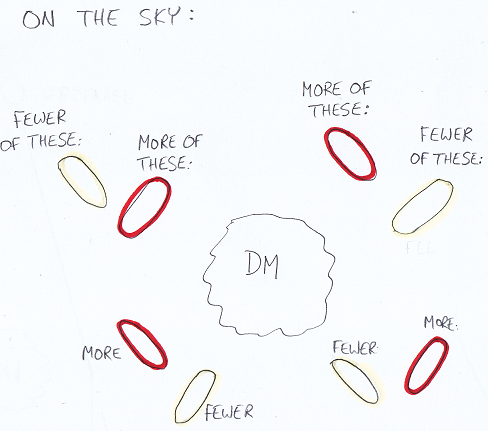 ON THE SKY:
MORE OF
THESE:
FEWER
OF THESE:
MORE OF
THESE:
FEWER
OF THESE:
DM
MORE
FEWER
FEWER
MORE: